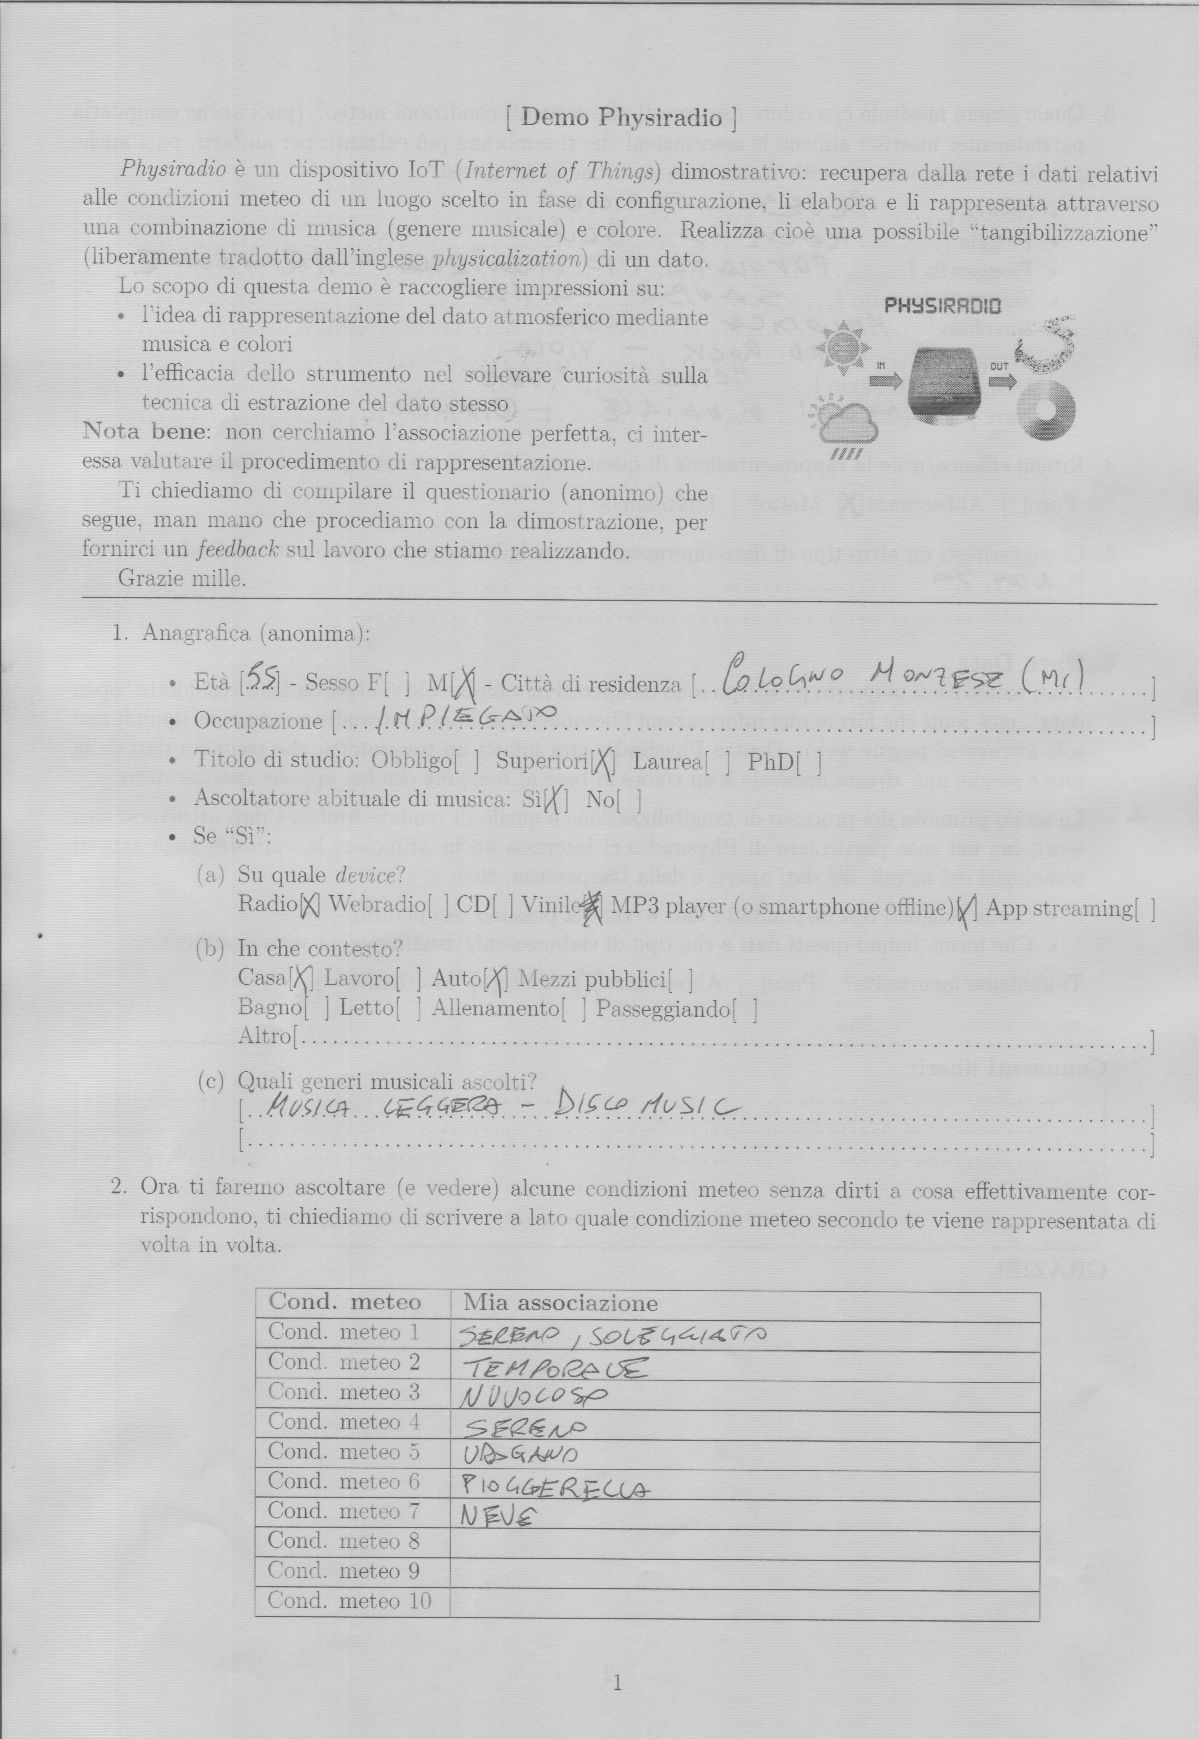 [ Demo Physiradio ]
Physiradio è un dispositivo IoT (Internet of Things) dimostrativo: recupera dalla rete i dati relativi
alle condizioni meteo di un luogo scelto in fase di configurazione, li elabora e li rappresenta attraverso
una combinazione di musica (genere musicale) e colore. Realizza cioè una possibile “tangibilizzazione”
(liberamente tradotto dall'inglese physicalization) di un dato.
Lo scopo di questa demo è raccogliere impressioni su:
• l'idea di rappresentazione del dato atmosferico mediante
musica e colori
• l'efficacia dello strumento nel sollevare curiosità sulla
tecnica di estrazione del dato stesso
Nota bene: non cerchiamo l'associazione perfetta, ci inter-
essa valutare il procedimento di rappresentazione.
Ti chiediamo di compilare il questionario (anonimo) che
segue, man mano che procediamo con la dimostrazione, per
fornirci un feedback sul lavoro che stiamo realizzando.
Grazie mille.
PHYSIRADIO
IN
OUT
1. Anagrafica (anonima):
• Età [55] - Sesso F[ ] M[X] - Città di residenza [.. COLOGNO MONZESE (MI) ......]
• Occupazione [.... IMPIEGATO ......]
• Titolo di studio: Obbligo[ ] Superiori[X] Laurea[ ] PhD[ ]
• Ascoltatore abituale di musica: Sì[X] No[ ]
• Se “Sì”:
(a) Su quale device?
Radio[X] Webradio[ ] CD[ ] Vinile[X] MP3 player (o smartphone offline)[X] App streaming[ ]
(b) In che contesto?
Casa[X] Lavoro[ ] Auto[X] Mezzi pubblici[ ]
Bagno[ ] Letto[ ] Allenamento[ ] Passeggiando[ ]
Altro[......]
(c) Quali generi musicali ascolti?
[.. MUSICA LEGGERA - DISCO MUSIC ......]
[......]
2. Ora ti faremo ascoltare (e vedere) alcune condizioni meteo senza dirti a cosa effettivamente cor-
rispondono, ti chiediamo di scrivere a lato quale condizione meteo secondo te viene rappresentata di
volta in volta.
Cond. meteo Mia associazione
Cond. meteo 1 SERENO, SOLEGGIATO
Cond. meteo 2 TEMPORALE
Cond. meteo 3 NUVOLOSO
Cond. meteo 4 SERENO
Cond. meteo 5 URAGANO
Cond. meteo 6 PIOGGERELLA
Cond. meteo 7 NEVE
Cond. meteo 8
Cond. meteo 9
Cond. meteo 10
1